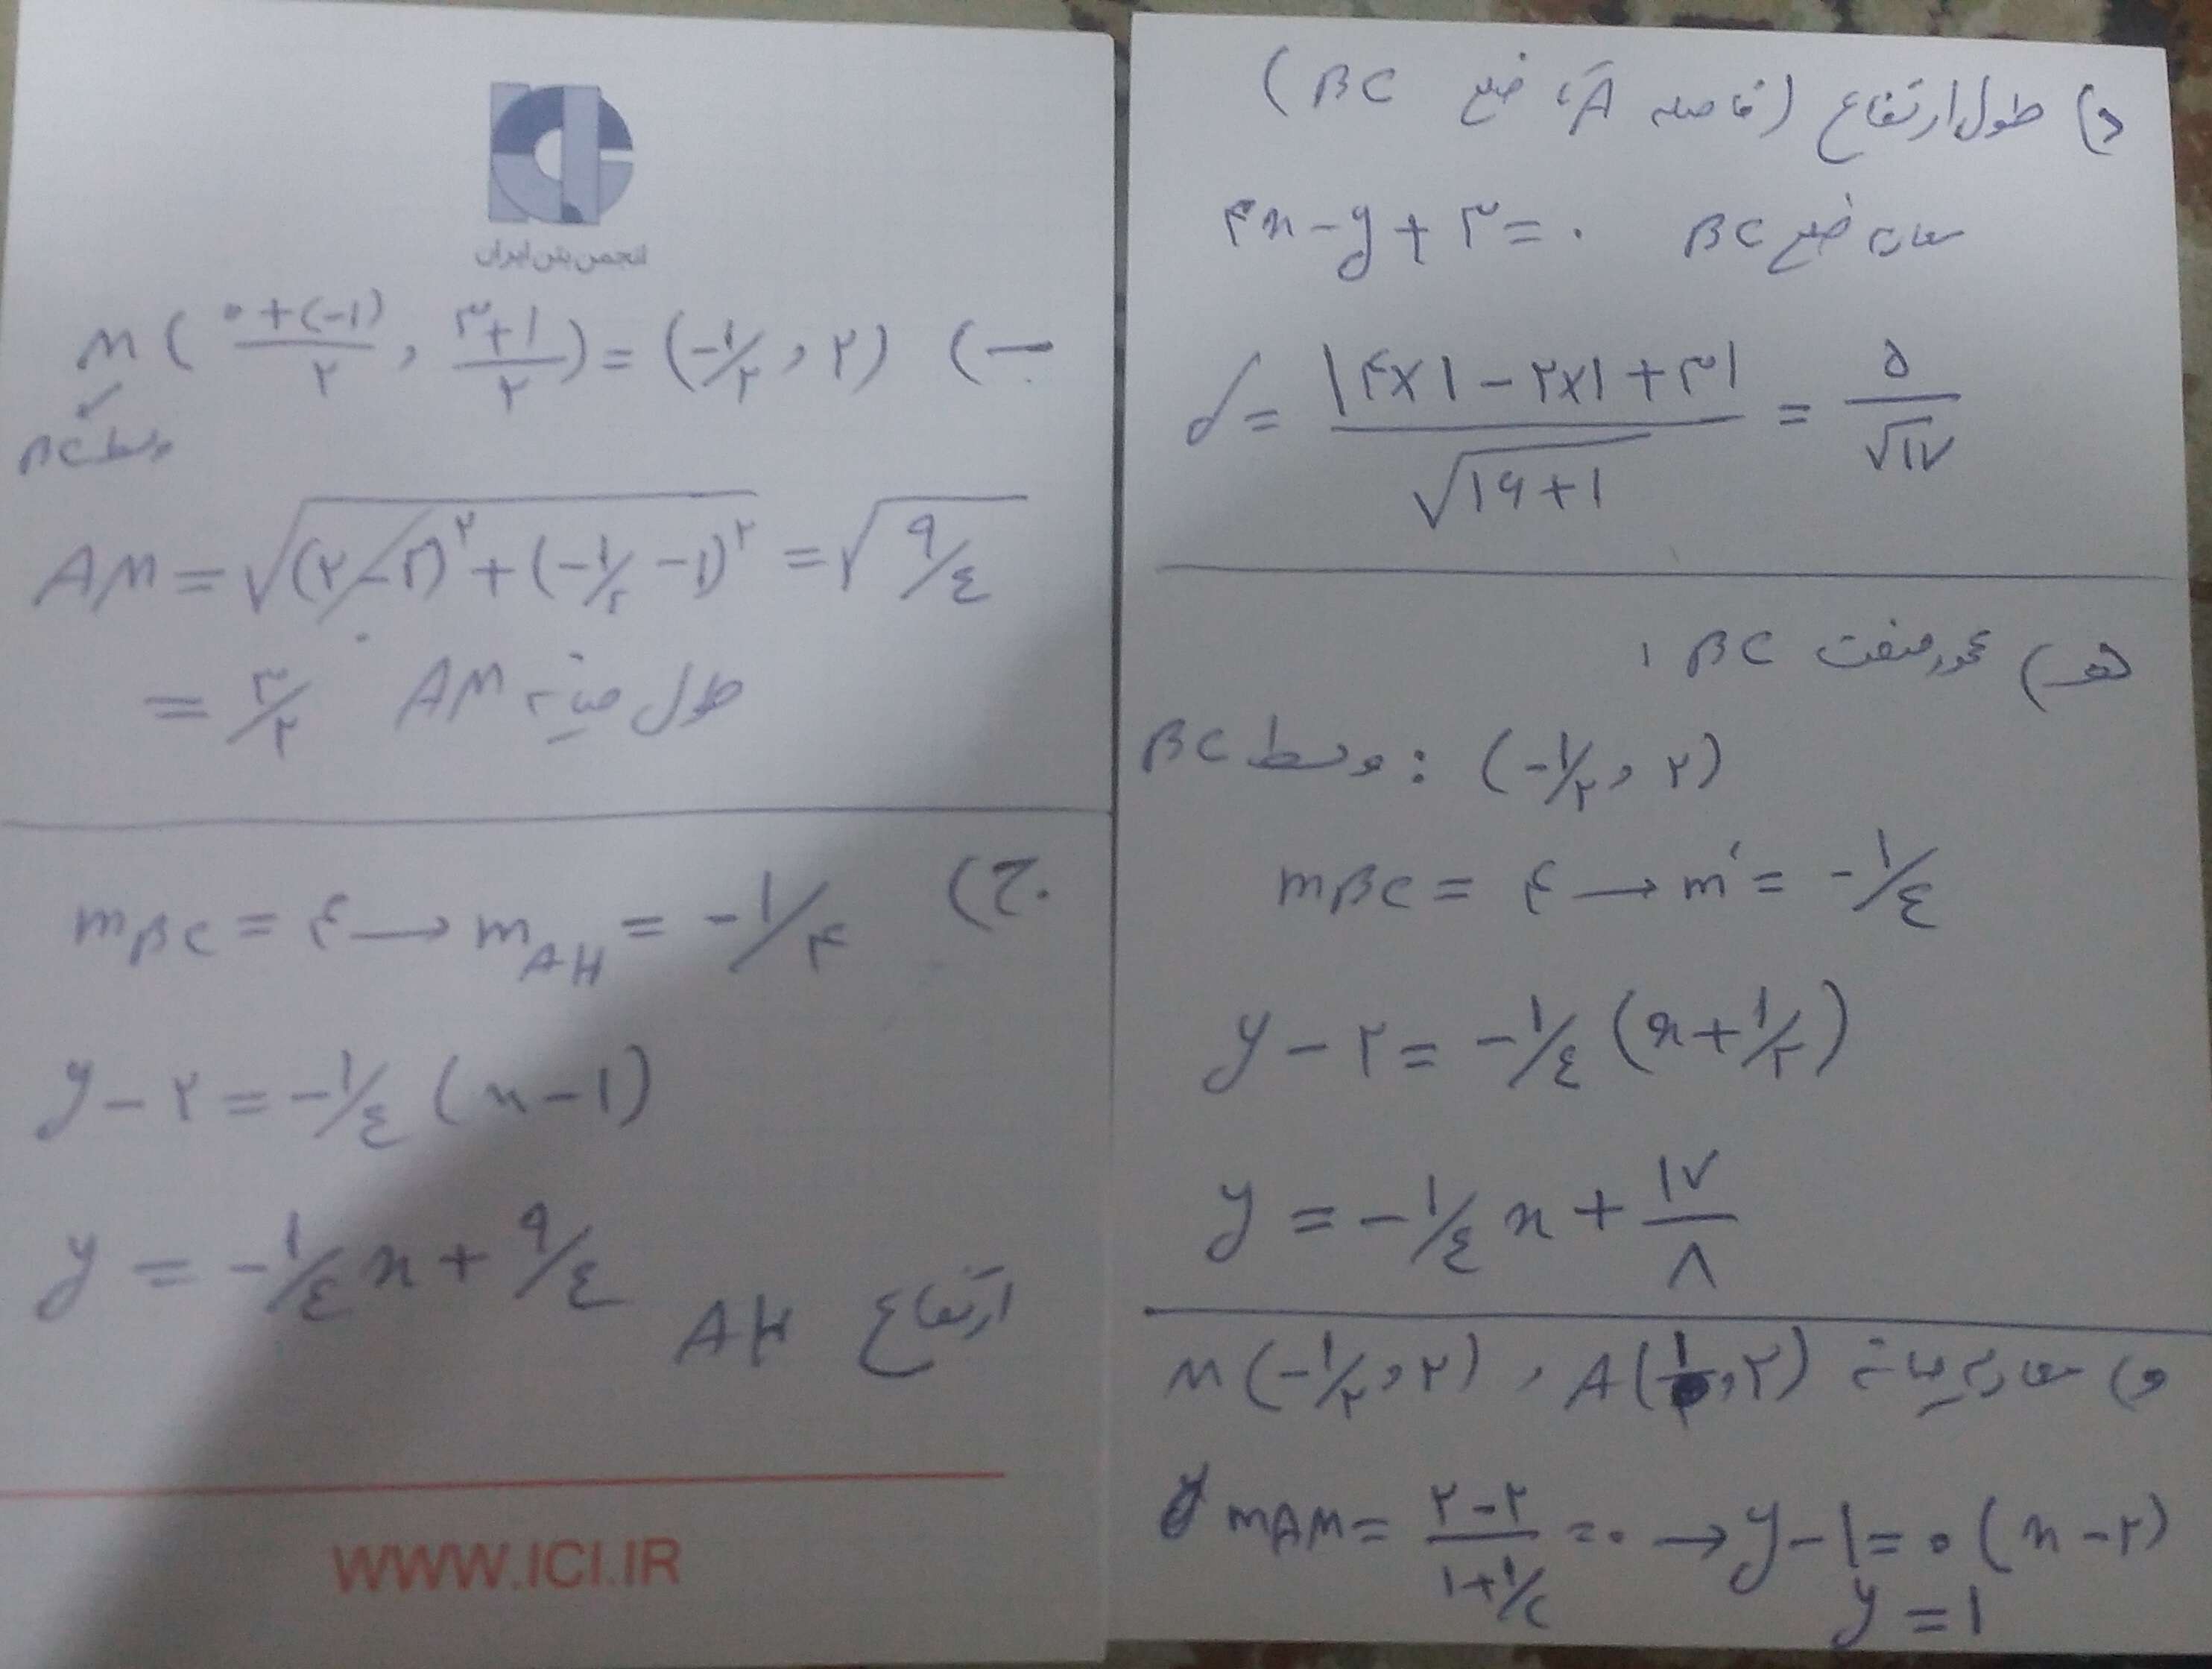 انجمن بتن ایران
ب) M(۰+(-۱)/۲ , ۳+۱/۲) = (-۱/۲ , ۲)
وسط BC
AM = √(۲-۲)^۲ + (-۱/۲ -۱)^۲ = √۹/٤
= ۳/۲ طول میانه AM
ج) mBC = ۴ → mAH = -۱/۴
y - ۲ = -۱/٤ (x-۱)
y = -۱/٤ x + ۹/٤
ارتفاع AH
WWW.ICI.IR
د) طول ارتفاع (فاصله A تا ضلع BC)
معادله ضلع BC ۴x - y + ۳ = ۰
d = |۴×۱ - ۲×۱ + ۳| / √۱۶+۱ = ۵/√۱۷
هـ) عمود منصف BC :
وسط BC : (-۱/۲ , ۲)
mBC = ۴ → m' = -۱/٤
y - ۲ = -۱/٤ (x + ۱/۲)
y = -۱/٤ x + ۱۷/۸
و) معادله میانه M(-۱/۲ , ۲) , A(۱ , ۲)
mAM = ۲-۲/۱+۱/۲ = ۰ → y - ۱ = ۰ (x - ۲)
y = ۱